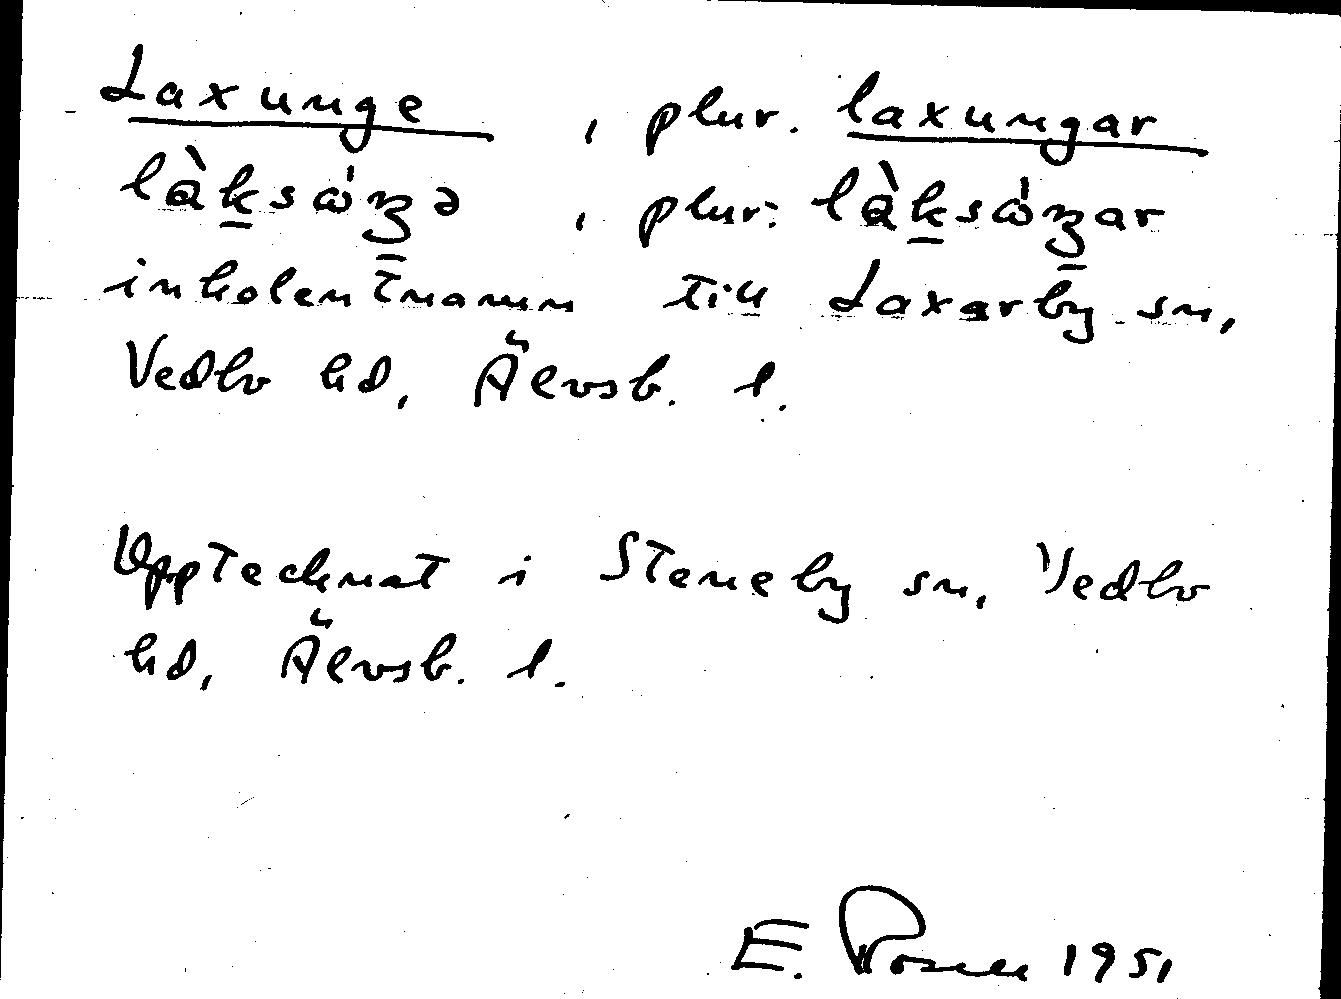 Laxunge, plur. laxungar
làk̠sωʹŋ̠ə, plur. làk̠sωʹŋ̠ar
inkolentnamn till Laxarby sn,
Vedbo hd, Älvsb. l.
Upptecknat i Steneby sn, Vedbo
hd, Älvsb. l.
E. Rosell 1951